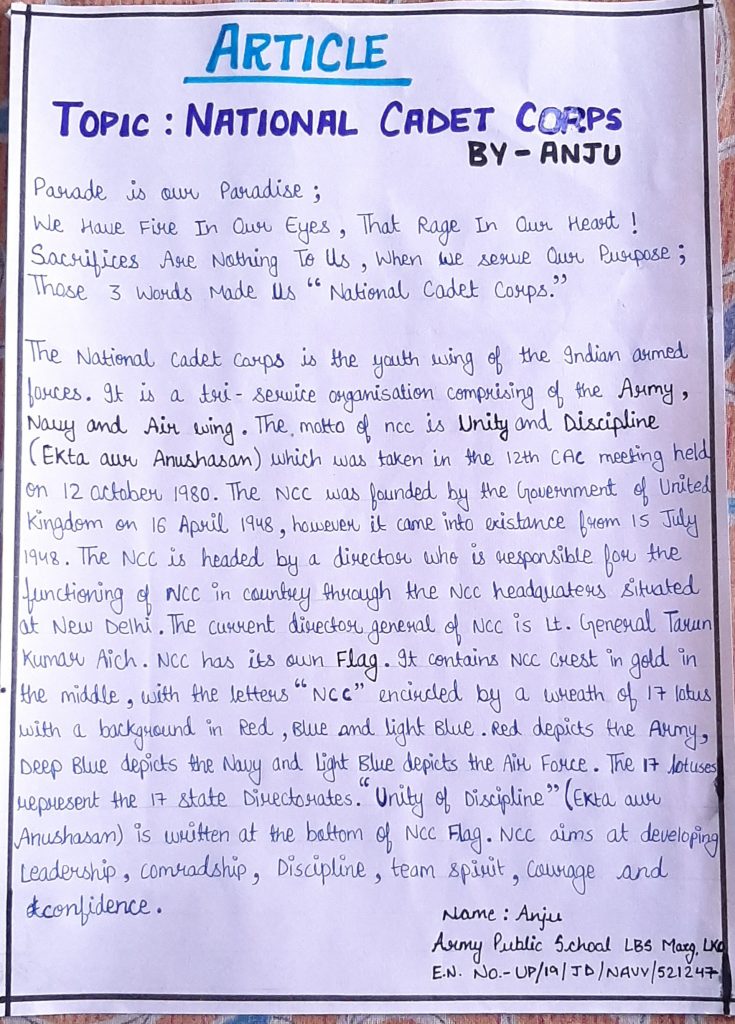 ARTICLE
TOPIC : NATIONAL CADET CORPS
BY - ANJU
Parade is our Paradise ;
We Have Fire In Our Eyes , That Rage In Our Heart !
Sacrifices Are Nothing To Us , When we serve Our Purpose ;
Those 3 Words Made Us " National Cadet Corps."
The National Cadet Corps is the youth wing of the Indian armed
forces. It is a tri- service organisation comprising of the Army,
Navy and Air wing . The motto of ncc is Unity and Discipline
(Ekta aur Anushasan) which was taken in the 12th CAC meeting held
on 12 october 1980. The NCC was founded by the Government of United
Kingdom on 16 April 1948, however it came into existance from 15 July
1948. The NCC is headed by a director who is responsible for the
functioning of NCC in country through the NCC headquaters situated
at New Delhi. The current director general of NCC is Lt. General Tarun
Kumar Aich. NCC has its own Flag. It contains NCC Crest in gold in
the middle, with the letters "NCC" encircled by a wreath of 17 lotus
with a background in Red , Blue and light Blue. Red depicts the Army,
Deep Blue depicts the Navy and light Blue depicts the Air Force. The 17 lotuses
represent the 17 state Directorates. "Unity of Discipline" (Ekta aur
Anushasan) is written at the bottom of NCC Flag. NCC aims at developing
Leadership, comradship, Discipline, team spirit, Courage and
confidence.
Name : Anju
Army Public School LBS Marg, LKO
E.N. No.- UP/19/JD/NAVV/521247